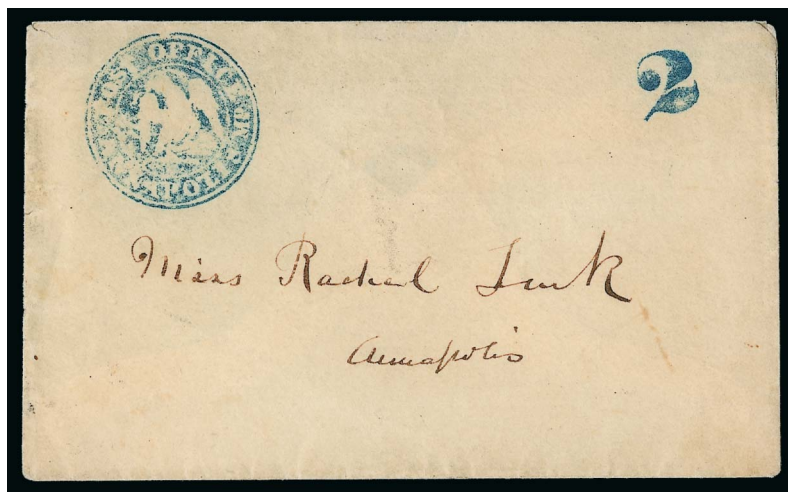 POST OFFICE ANNAPOLIS MD
2
Miss Rachel
Annapolis